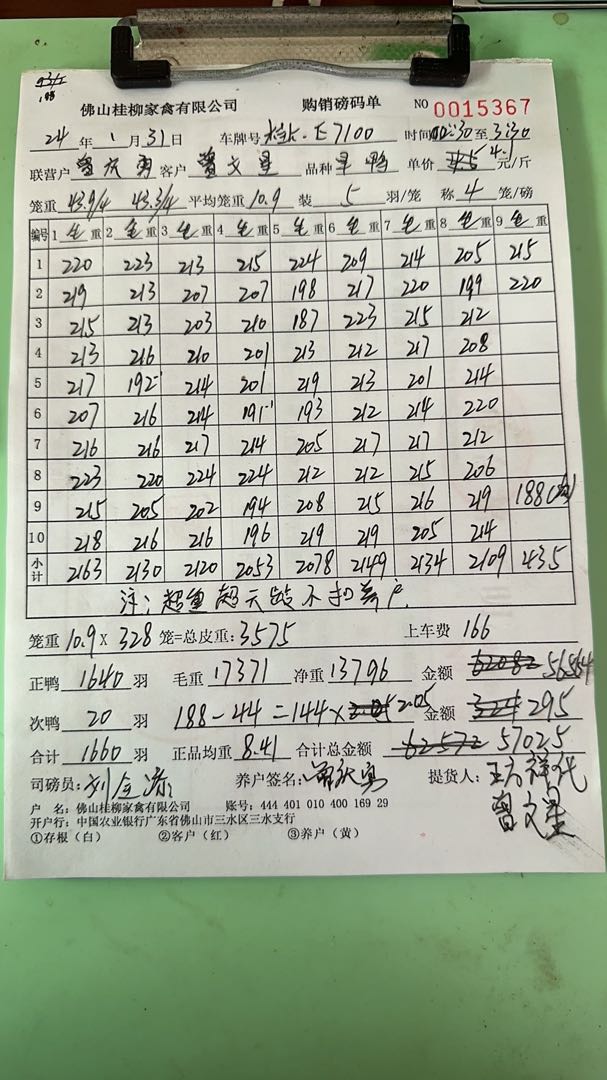 佛山桂柳家禽有限公司 购销磅码单 NO 0015367
24 年 1 月 31 日 车牌号 E7100 时间 30 至 3:30
联营户 曾庆勇 客户 曾文星 品种 旱鸭 单价 4.1 元/斤
笼重 43.9/4 43.3/4 平均笼重 10.9 装 5 羽/笼 称 4 笼/磅
编号 1 毛重 2 毛重 3 毛重 4 毛重 5 毛重 6 毛重 7 毛重 8 毛重 9 毛重
1 220 223 213 215 224 209 214 205 215
2 219 213 207 207 198 217 220 199 220
3 215 213 203 210 187 223 215 212
4 213 216 210 201 213 212 217 208
5 217 192-1 214 201 219 213 201 214
6 207 216 214 191-1 193 212 214 220
7 216 216 217 214 205 217 217 212
8 223 220 224 224 212 212 215 206
9 215 205 202 194 208 215 216 219 188(次)
10 218 216 216 196 219 219 205 214
小计 2163 2130 2120 2053 2078 2149 2134 2109 435
注:超重超天龄不扣养户
笼重 10.9 X 328 笼=总皮重:3575 上车费 166
正鸭 1640 羽 毛重 17371 净重 13796 金额 62082 56564
次鸭 20 羽 188-44=144× 2.05 金额 295
合计 1660 羽 正品均重 8.41 合计总金额 57025
司磅员: 养户签名:曾庆勇 提货人: 代
曾文星
户 名:佛山桂柳家禽有限公司 账号:444 401 010 400 169 29
开户行:中国农业银行广东省佛山市三水区三水支行
①存根(白) ②客户(红) ③养户(黄)